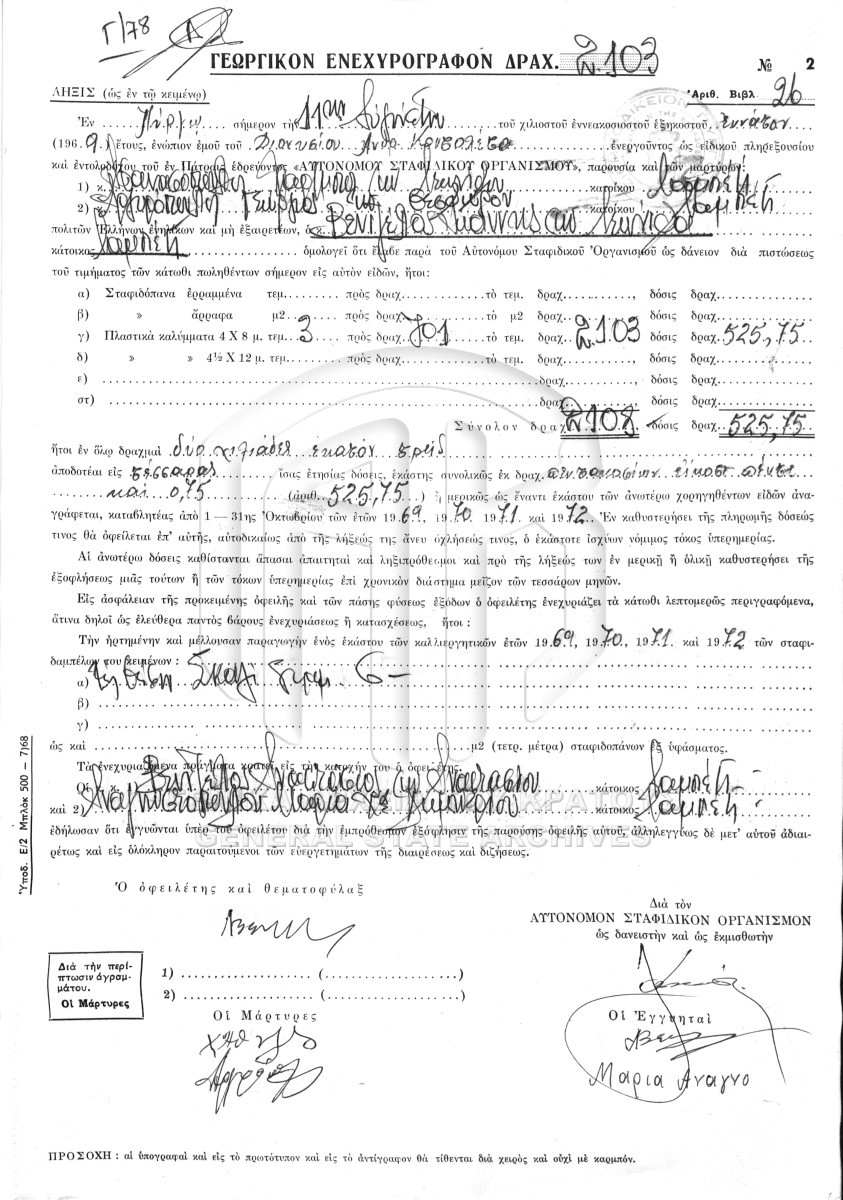 Γ/78
ΓΕΩΡΓΙΚΟΝ ΕΝΕΧΥΡΟΓΡΑΦΟΝ ΔΡΑΧ. 2.103 № 2
ΛΗΞΙΣ (ὡς ἐν τῷ κειμένῳ) Ἀριθ. Βιβλ 26
Ἐν Πύργῳ σήμερον τὴν 11ην Αὐγούστου τοῦ χιλιοστοῦ ἐννεακοσιοστοῦ ἑξηκοστοῦ ἐννάτου
(196 9) ἔτους, ἐνώπιον ἐμοῦ τοῦ Διονυσίου ἐνεργοῦντος ὡς εἰδικοῦ πληρεξουσίου
καὶ ἐντολοδόχου τοῦ ἐν Πάτραις ἑδρεύοντος «ΑΥΤΟΝΟΜΟΥ ΣΤΑΦΙΔΙΚΟΥ ΟΡΓΑΝΙΣΜΟΥ», παρουσίᾳ καὶ τῶν μαρτύρων:
1) κ. κατοίκου
2) Γεώργιος κατοίκου
πολιτῶν Ἑλλήνων ἐνηλίκων καὶ μὴ ἐξαιρετέων, ὁ κ. Βενιζέλος Ἰωάννης
κάτοικος ὁμολογεῖ ὅτι ἔλαβε παρὰ τοῦ Αὐτονόμου Σταφιδικοῦ Ὀργανισμοῦ ὡς δάνειον διὰ πιστώσεως
τοῦ τιμήματος τῶν κάτωθι πωληθέντων σήμερον εἰς αὐτὸν εἰδῶν, ἤτοι:
α) Σταφιδόπανα ἐρραμμένα τεμ. πρὸς δραχ. τὸ τεμ. δραχ. , δόσις δραχ.
β) » ἄρραφα μ2 πρὸς δραχ. τὸ μ2 δραχ. , δόσις δραχ.
γ) Πλαστικὰ καλύμματα 4 Χ 8 μ. τεμ. 3 πρὸς δραχ. 701 τὸ τεμ. δραχ. 2.103 δόσις δραχ. 525,75
δ) » » 4½ Χ 12 μ. τεμ. πρὸς δραχ. τὸ τεμ. δραχ. , δόσις δραχ.
ε) δραχ. , δόσις δραχ.
στ) δραχ. , δόσις δραχ.
Σύνολον δραχ. 2.103 δόσις δραχ. 525,75
ἤτοι ἐν ὅλῳ δραχμαὶ δύο χιλιάδες ἑκατὸν τρεῖς
ἀποδοτέαι εἰς τέσσαρας ἴσας ἐτησίας δόσεις, ἑκάστης συνολικῶς ἐκ δραχ. πεντακοσίων εἴκοσι πέντε
καὶ 0,75 (ἀριθ. 525,75) ἢ μερικῶς ὡς ἔναντι ἑκάστου τῶν ἀνωτέρω χορηγηθέντων εἰδῶν ἀνα-
γράφεται, καταβλητέας ἀπὸ 1 — 31ης Ὀκτωβρίου τῶν ἐτῶν 19 69, 19 70, 19 71 καὶ 19 72. Ἐν καθυστερήσει τῆς πληρωμῆς δόσεώς
τινος θὰ ὀφείλεται ἐπ' αὐτῆς, αὐτοδικαίως ἀπὸ τῆς λήξεώς της ἄνευ ὀχλήσεώς τινος, ὁ ἑκάστοτε ἰσχύων νόμιμος τόκος ὑπερημερίας.
Αἱ ἀνωτέρω δόσεις καθίστανται ἅπασαι ἀπαιτηταὶ καὶ ληξιπρόθεσμοι καὶ πρὸ τῆς λήξεώς των ἐν μερικῇ ἢ ὁλικῇ καθυστερήσει τῆς
ἐξοφλήσεως μιᾶς τούτων ἢ τῶν τόκων ὑπερημερίας ἐπὶ χρονικὸν διάστημα μεῖζον τῶν τεσσάρων μηνῶν.
Εἰς ἀσφάλειαν τῆς προκειμένης ὀφειλῆς καὶ τῶν πάσης φύσεως ἐξόδων ὁ ὀφειλέτης ἐνεχυριάζει τὰ κάτωθι λεπτομερῶς περιγραφόμενα,
ἅτινα δηλοῖ ὡς ἐλεύθερα παντὸς βάρους ἐνεχυριάσεως ἢ κατασχέσεως, ἤτοι :
Τὴν ἠρτημένην καὶ μέλλουσαν παραγωγὴν ἑνὸς ἑκάστου τῶν καλλιεργητικῶν ἐτῶν 19 69, 19 70, 19 71 καὶ 19 72 τῶν σταφι-
δαμπέλων του κειμένων :
α) Σκαλὶ στρεμ. 6 —
β)
γ)
ὡς καὶ μ2 (τετρ. μέτρα) σταφιδοπάνων ἐξ ὑφάσματος.
Τὰ ἐνεχυριαζόμενα πράγματα κρατεῖ εἰς τὴν κατοχήν του ὁ ὀφειλέτης.
Οἱ κ. Βενιζέλος Ἀναστάσιος κάτοικος
καὶ 2) Ἀναγνωστοπούλου Μαρία κάτοικος
ἐδήλωσαν ὅτι ἐγγυῶνται ὑπὲρ τοῦ ὀφειλέτου διὰ τὴν ἐμπρόθεσμον ἐξόφλησιν τῆς παρούσης ὀφειλῆς αὐτοῦ, ἀλληλεγγύως δὲ μετ' αὐτοῦ ἀδιαι-
ρέτως καὶ εἰς ὁλόκληρον παραιτούμενοι τῶν εὐεργετημάτων τῆς διαιρέσεως καὶ διζήσεως.
GENERAL STATE ARCHIVES
Ὑποδ. Ε/2 Μπλὸκ 500 — 7)68
Ὁ ὀφειλέτης καὶ θεματοφύλαξ
Διὰ τὸν
ΑΥΤΟΝΟΜΟΝ ΣΤΑΦΙΔΙΚΟΝ ΟΡΓΑΝΙΣΜΟΝ
ὡς δανειστὴν καὶ ὡς ἐκμισθωτὴν
Διὰ τὴν περί-
πτωσιν ἀγραμ-
μάτου.
Οἱ Μάρτυρες
1) (
)
2) (
)
Οἱ Μάρτυρες
Οἱ Ἐγγυηταὶ
Μαρια Αναγνο
ΠΡΟΣΟΧΗ : αἱ ὑπογραφαὶ καὶ εἰς τὸ πρωτότυπον καὶ εἰς τὸ ἀντίγραφον θὰ τίθενται διὰ χειρὸς καὶ οὐχὶ μὲ καρμπόν.